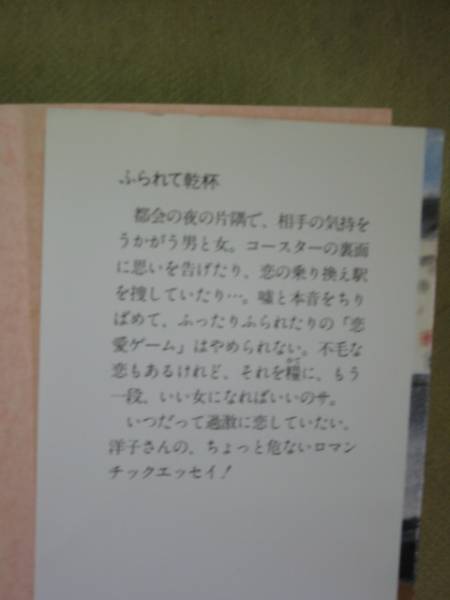 ふられて乾杯
都会の夜の片隅で、相手の気持を
うかがう男と女。コースターの裏面
に思いを告げたり、恋の乗り換え駅
を捜していたり…。嘘と本音をちり
ばめて、ふったりふられたりの「恋
愛ゲーム」はやめられない。不毛な
恋もあるけれど、それを糧に、もう
一段、いい女になればいいのサ。
いつだって過激に恋していたい。
洋子さんの、ちょっと危ないロマン
チックエッセイ!